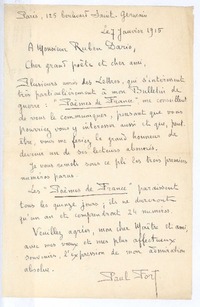 Paris, 125 boulevard Saint-Germain
Le 7 Janvier 1915
A Monsieur Ruben Dario,
Cher grand poète et cher ami,
Plusieurs amis des Lettres, qui s'intéressent
très particulièrement à mon Bulletin de
guerre : "Poèmes de France" me conseillent
de vous le communiquer, pensant que vous
pourriez vous y intéresser aussi et que, peut-
être, vous me feriez le grand honneur de
devenir un de ses lecteurs abonnés.
Je vous envoie sous ce pli les trois premiers
numéros parus.
Les "Poèmes de France" paraissent
tous les quinze jours ; ils ne dureront
qu'un an et comprendront 24 numéros.
Veuillez agréer, mon cher Maître et ami,
avec mes vœux et mes plus affectueux
souvenirs, l'expression de mon admiration
absolue.
Paul Fort